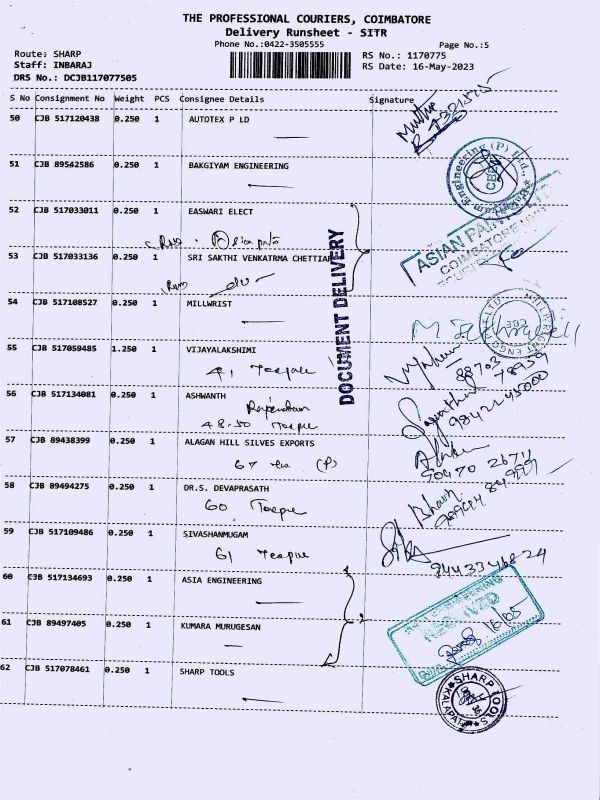 THE PROFESSIONAL COURIERS, COIMBATORE
Delivery Runsheet - SITR
Phone No.:0422-3505555 Page No.:5
Route: SHARP RS No.: 1170775
Staff: INBARAJ RS Date: 16-May-2023
DRS No.: DCJB117077505
S No Consignment No Weight PCS Consignee Details Signature
50 CJB 517120438 0.250 1 AUTOTEX P LD
51 CJB 89542586 0.250 1 BAKGIYAM ENGINEERING
52 CJB 517033011 0.250 1 EASWARI ELECT
ASIAN PAINTS
COIMBATORE
53 CJB 517033136 0.250 1 SRI SAKTHI VENKATRMA CHETTIAR
DOCUMENT DELIVERY
54 CJB 517108527 0.250 1 MILLWRIST
55 CJB 517059485 1.250 1 VIJAYALAKSHIMI
41
88703 78959
56 CJB 517134081 0.250 1 ASHWANTH
9842245000
48.50
57 CJB 89438399 0.250 1 ALAGAN HILL SILVES EXPORTS
67 (P)
90470 2674
58 CJB 89494275 0.250 1 DR.S. DEVAPRASATH
60
59 CJB 517109486 0.250 1 SIVASHANMUGAM
61
9443346824
60 CJB 517134693 0.250 1 ASIA ENGINEERING
RECEIVED
61 CJB 89497405 0.250 1 KUMARA MURUGESAN
16/05
62 CJB 517078461 0.250 1 SHARP TOOLS
SHARP TOOLS
KALAPATTI